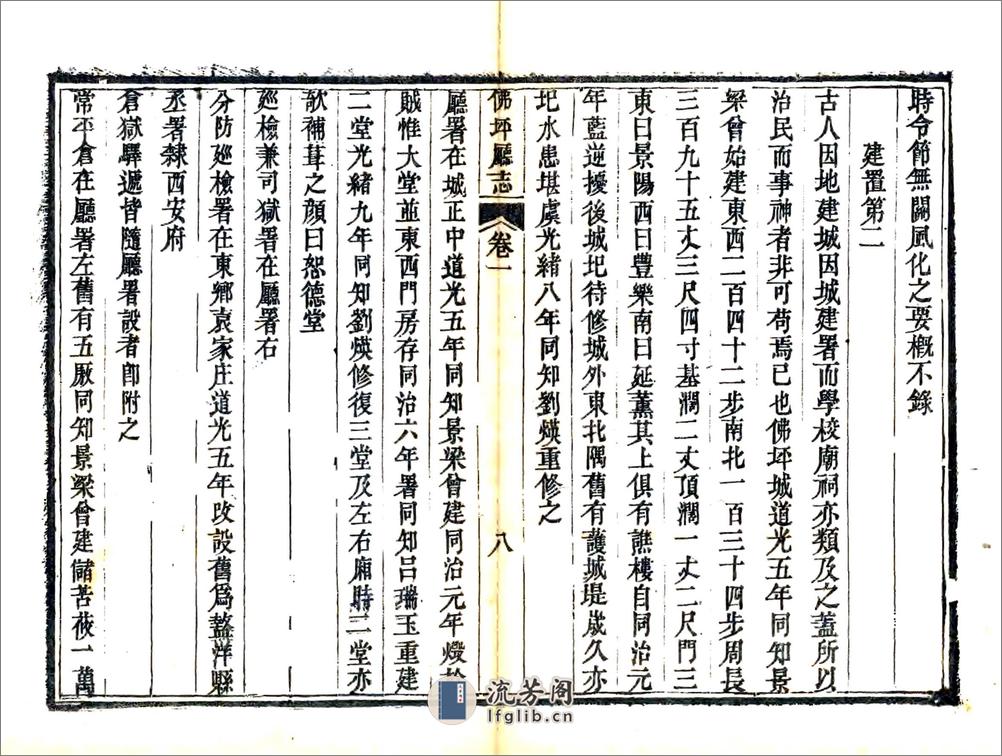 時令節無關風化之要概不錄
建置第二
古人因地建城因城建署而學校廟祠亦類及之蓋所以
治民而事神者非可苟焉已也佛坪城道光五年同知景
梁曾始建東西二百四十二步南北一百三十四步周長
三百九十五丈三尺四寸基濶二丈頂濶一丈二尺門三
東曰景陽西曰豊樂南曰延薰其上俱有譙樓自同治元
年藍逆擾後城圯待修城外東北隅舊有護城堤歲久亦
圯水患堪虞光緒八年同知劉煐重修之
佛坪廳志 卷一 八
廳署在城正中道光五年同知景梁曾建同治元年燬於
賊惟大堂並東西門房存同治六年署同知吕瑞玉重建
二堂光緒九年同知劉煐修復三堂及左右廂時二堂亦
欹補葺之顔曰恕德堂
廵檢兼司獄署在廳署右
分防廵檢署在東鄉袁家庄道光五年改設舊爲盩洋縣
丞署隸西安府
倉獄驛遞皆隨廳署設者卽附之
常平倉在廳署左舊有五厫同知景梁曾建儲苦莜一萬
流芳阁
lfglib.cn